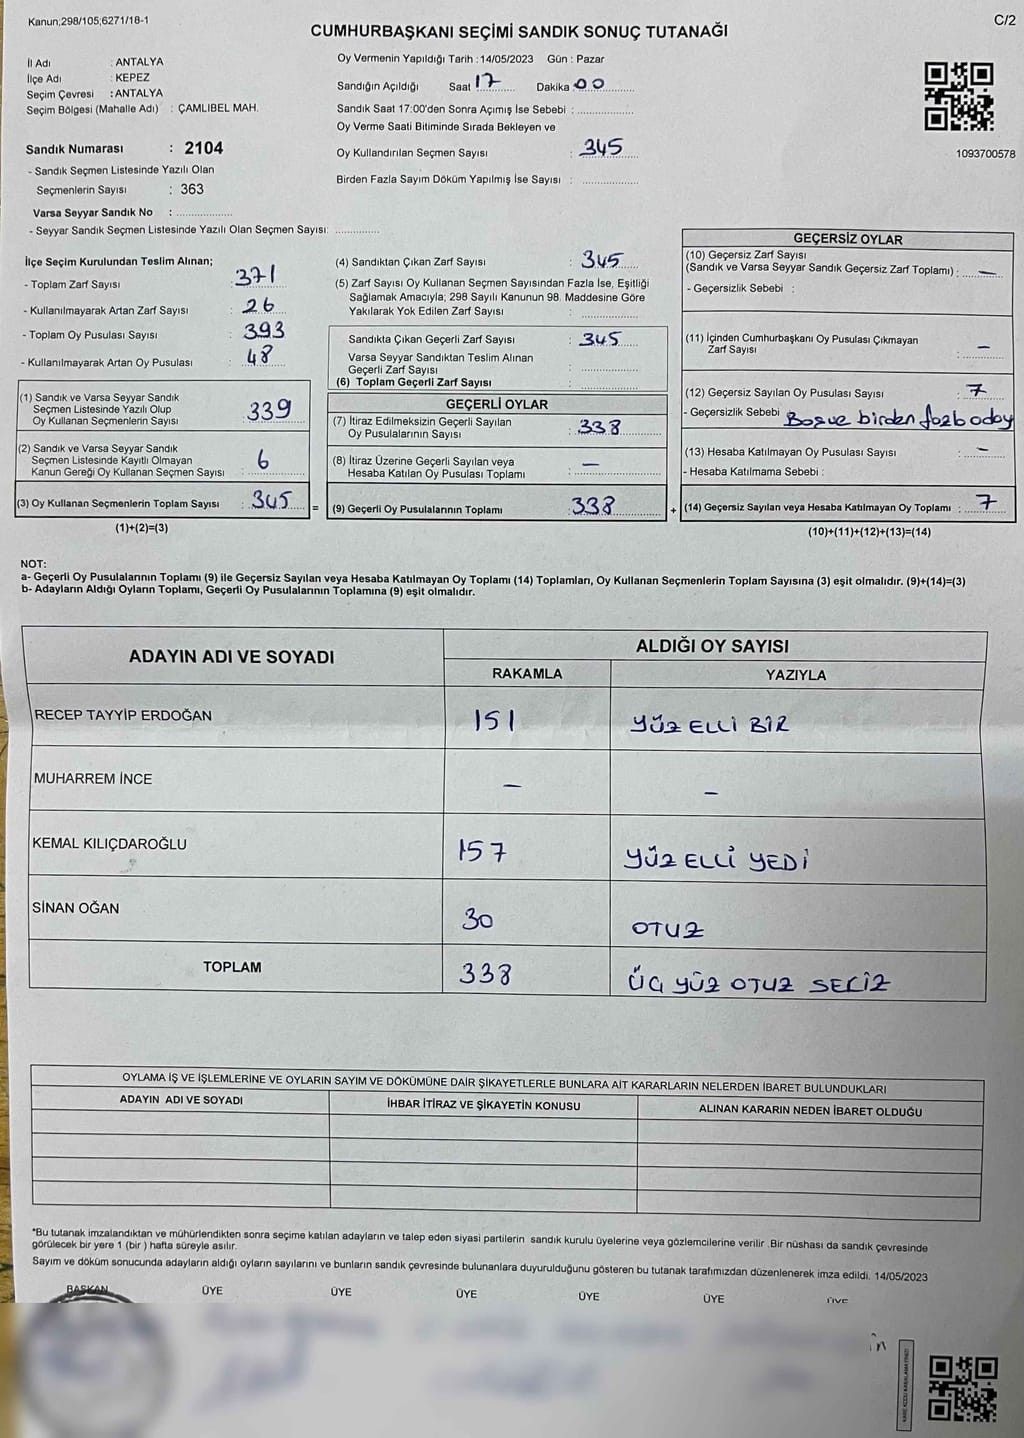 Kanun;298/105;6271/18-1
C/2
CUMHURBAŞKANI SEÇİMİ SANDIK SONUÇ TUTANAĞI
İl Adı : ANTALYA
İlçe Adı : KEPEZ
Seçim Çevresi : ANTALYA
Seçim Bölgesi (Mahalle Adı) : ÇAMLIBEL MAH.
Sandık Numarası : 2104
- Sandık Seçmen Listesinde Yazılı Olan
Seçmenlerin Sayısı : 363
Varsa Seyyar Sandık No : ..................
- Seyyar Sandık Seçmen Listesinde Yazılı Olan Seçmen Sayısı: ..............
Oy Vermenin Yapıldığı Tarih : 14/05/2023 Gün : Pazar
Sandığın Açıldığı Saat 17 Dakika : 00
Sandık Saat 17:00'den Sonra Açımış İse Sebebi : ..................
Oy Verme Saati Bitiminde Sırada Bekleyen ve
Oy Kullandırılan Seçmen Sayısı : 345
Birden Fazla Sayım Döküm Yapılmış İse Sayısı : ..................
1093700578
İlçe Seçim Kurulundan Teslim Alınan;
- Toplam Zarf Sayısı : 371
- Kullanılmayarak Artan Zarf Sayısı : 26
- Toplam Oy Pusulası Sayısı : 393
- Kullanılmayarak Artan Oy Pusulası : 48
(1) Sandık ve Varsa Seyyar Sandık
Seçmen Listesinde Yazılı Olup
Oy Kullanan Seçmenlerin Sayısı : 339
(2) Sandık ve Varsa Seyyar Sandık
Seçmen Listesinde Kayıtlı Olmayan
Kanun Gereği Oy Kullanan Seçmen Sayısı : 6
(3) Oy Kullanan Seçmenlerin Toplam Sayısı : 345 =
(1)+(2)=(3)
(4) Sandıktan Çıkan Zarf Sayısı : 345
(5) Zarf Sayısı Oy Kullanan Seçmen Sayısından Fazla İse, Eşitliği
Sağlamak Amacıyla; 298 Sayılı Kanunun 98. Maddesine Göre
Yakılarak Yok Edilen Zarf Sayısı : ..................
Sandıkta Çıkan Geçerli Zarf Sayısı : 345
Varsa Seyyar Sandıktan Teslim Alınan
Geçerli Zarf Sayısı : ..................
(6) Toplam Geçerli Zarf Sayısı : ..................
GEÇERLİ OYLAR
(7) İtiraz Edilmeksizin Geçerli Sayılan
Oy Pusulalarının Sayısı : 338
(8) İtiraz Üzerine Geçerli Sayılan veya
Hesaba Katılan Oy Pusulası Toplamı : –
(9) Geçerli Oy Pusulalarının Toplamı : 338 +
GEÇERSİZ OYLAR
(10) Geçersiz Zarf Sayısı
(Sandık ve Varsa Seyyar Sandık Geçersiz Zarf Toplamı) : –
- Geçersizlik Sebebi :
(11) İçinden Cumhurbaşkanı Oy Pusulası Çıkmayan
Zarf Sayısı : –
(12) Geçersiz Sayılan Oy Pusulası Sayısı : 7
- Geçersizlik Sebebi birden
(13) Hesaba Katılmayan Oy Pusulası Sayısı : –
- Hesaba Katılmama Sebebi :
(14) Geçersiz Sayılan veya Hesaba Katılmayan Oy Toplamı : 7
(10)+(11)+(12)+(13)=(14)
NOT:
a- Geçerli Oy Pusulalarının Toplamı (9) ile Geçersiz Sayılan veya Hesaba Katılmayan Oy Toplamı (14) Toplamları, Oy Kullanan Seçmenlerin Toplam Sayısına (3) eşit olmalıdır. (9)+(14)=(3)
b- Adayların Aldığı Oyların Toplamı, Geçerli Oy Pusulalarının Toplamına (9) eşit olmalıdır.
ADAYIN ADI VE SOYADI ALDIĞI OY SAYISI
RAKAMLA YAZIYLA
RECEP TAYYİP ERDOĞAN 151 YÜZ ELLİ BİR
MUHARREM İNCE – –
KEMAL KILIÇDAROĞLU 157 YÜZ ELLİ YEDİ
SİNAN OĞAN 30 OTUZ
TOPLAM 338 ÜÇ YÜZ OTUZ SEKİZ
OYLAMA İŞ VE İŞLEMLERİNE VE OYLARIN SAYIM VE DÖKÜMÜNE DAİR ŞİKAYETLERLE BUNLARA AİT KARARLARIN NELERDEN İBARET BULUNDUKLARI
ADAYIN ADI VE SOYADI İHBAR İTİRAZ VE ŞİKAYETİN KONUSU ALINAN KARARIN NEDEN İBARET OLDUĞU
*Bu tutanak imzalandıktan ve mühürlendikten sonra seçime katılan adayların ve talep eden siyasi partilerin sandık kurulu üyelerine veya gözlemcilerine verilir .Bir nüshası da sandık çevresinde
görülecek bir yere 1 (bir ) hafta süreyle asılır.
Sayım ve döküm sonucunda adayların aldığı oyların sayılarını ve bunların sandık çevresinde bulunanlara duyurulduğunu gösteren bu tutanak tarafımızdan düzenlenerek imza edildi. 14/05/2023
BAŞKAN ÜYE ÜYE ÜYE ÜYE ÜYE ÜYE